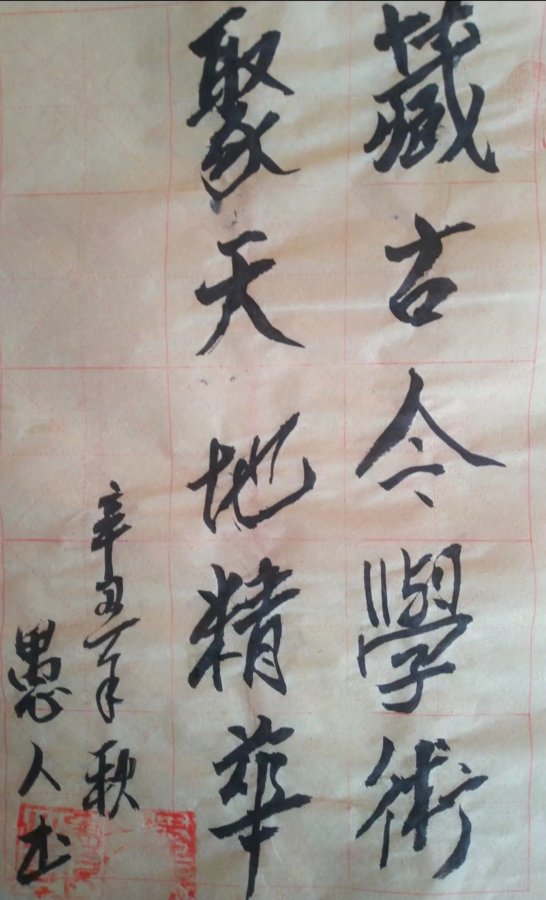 藏古今學術
聚天地精華
辛丑年秋
愚人书